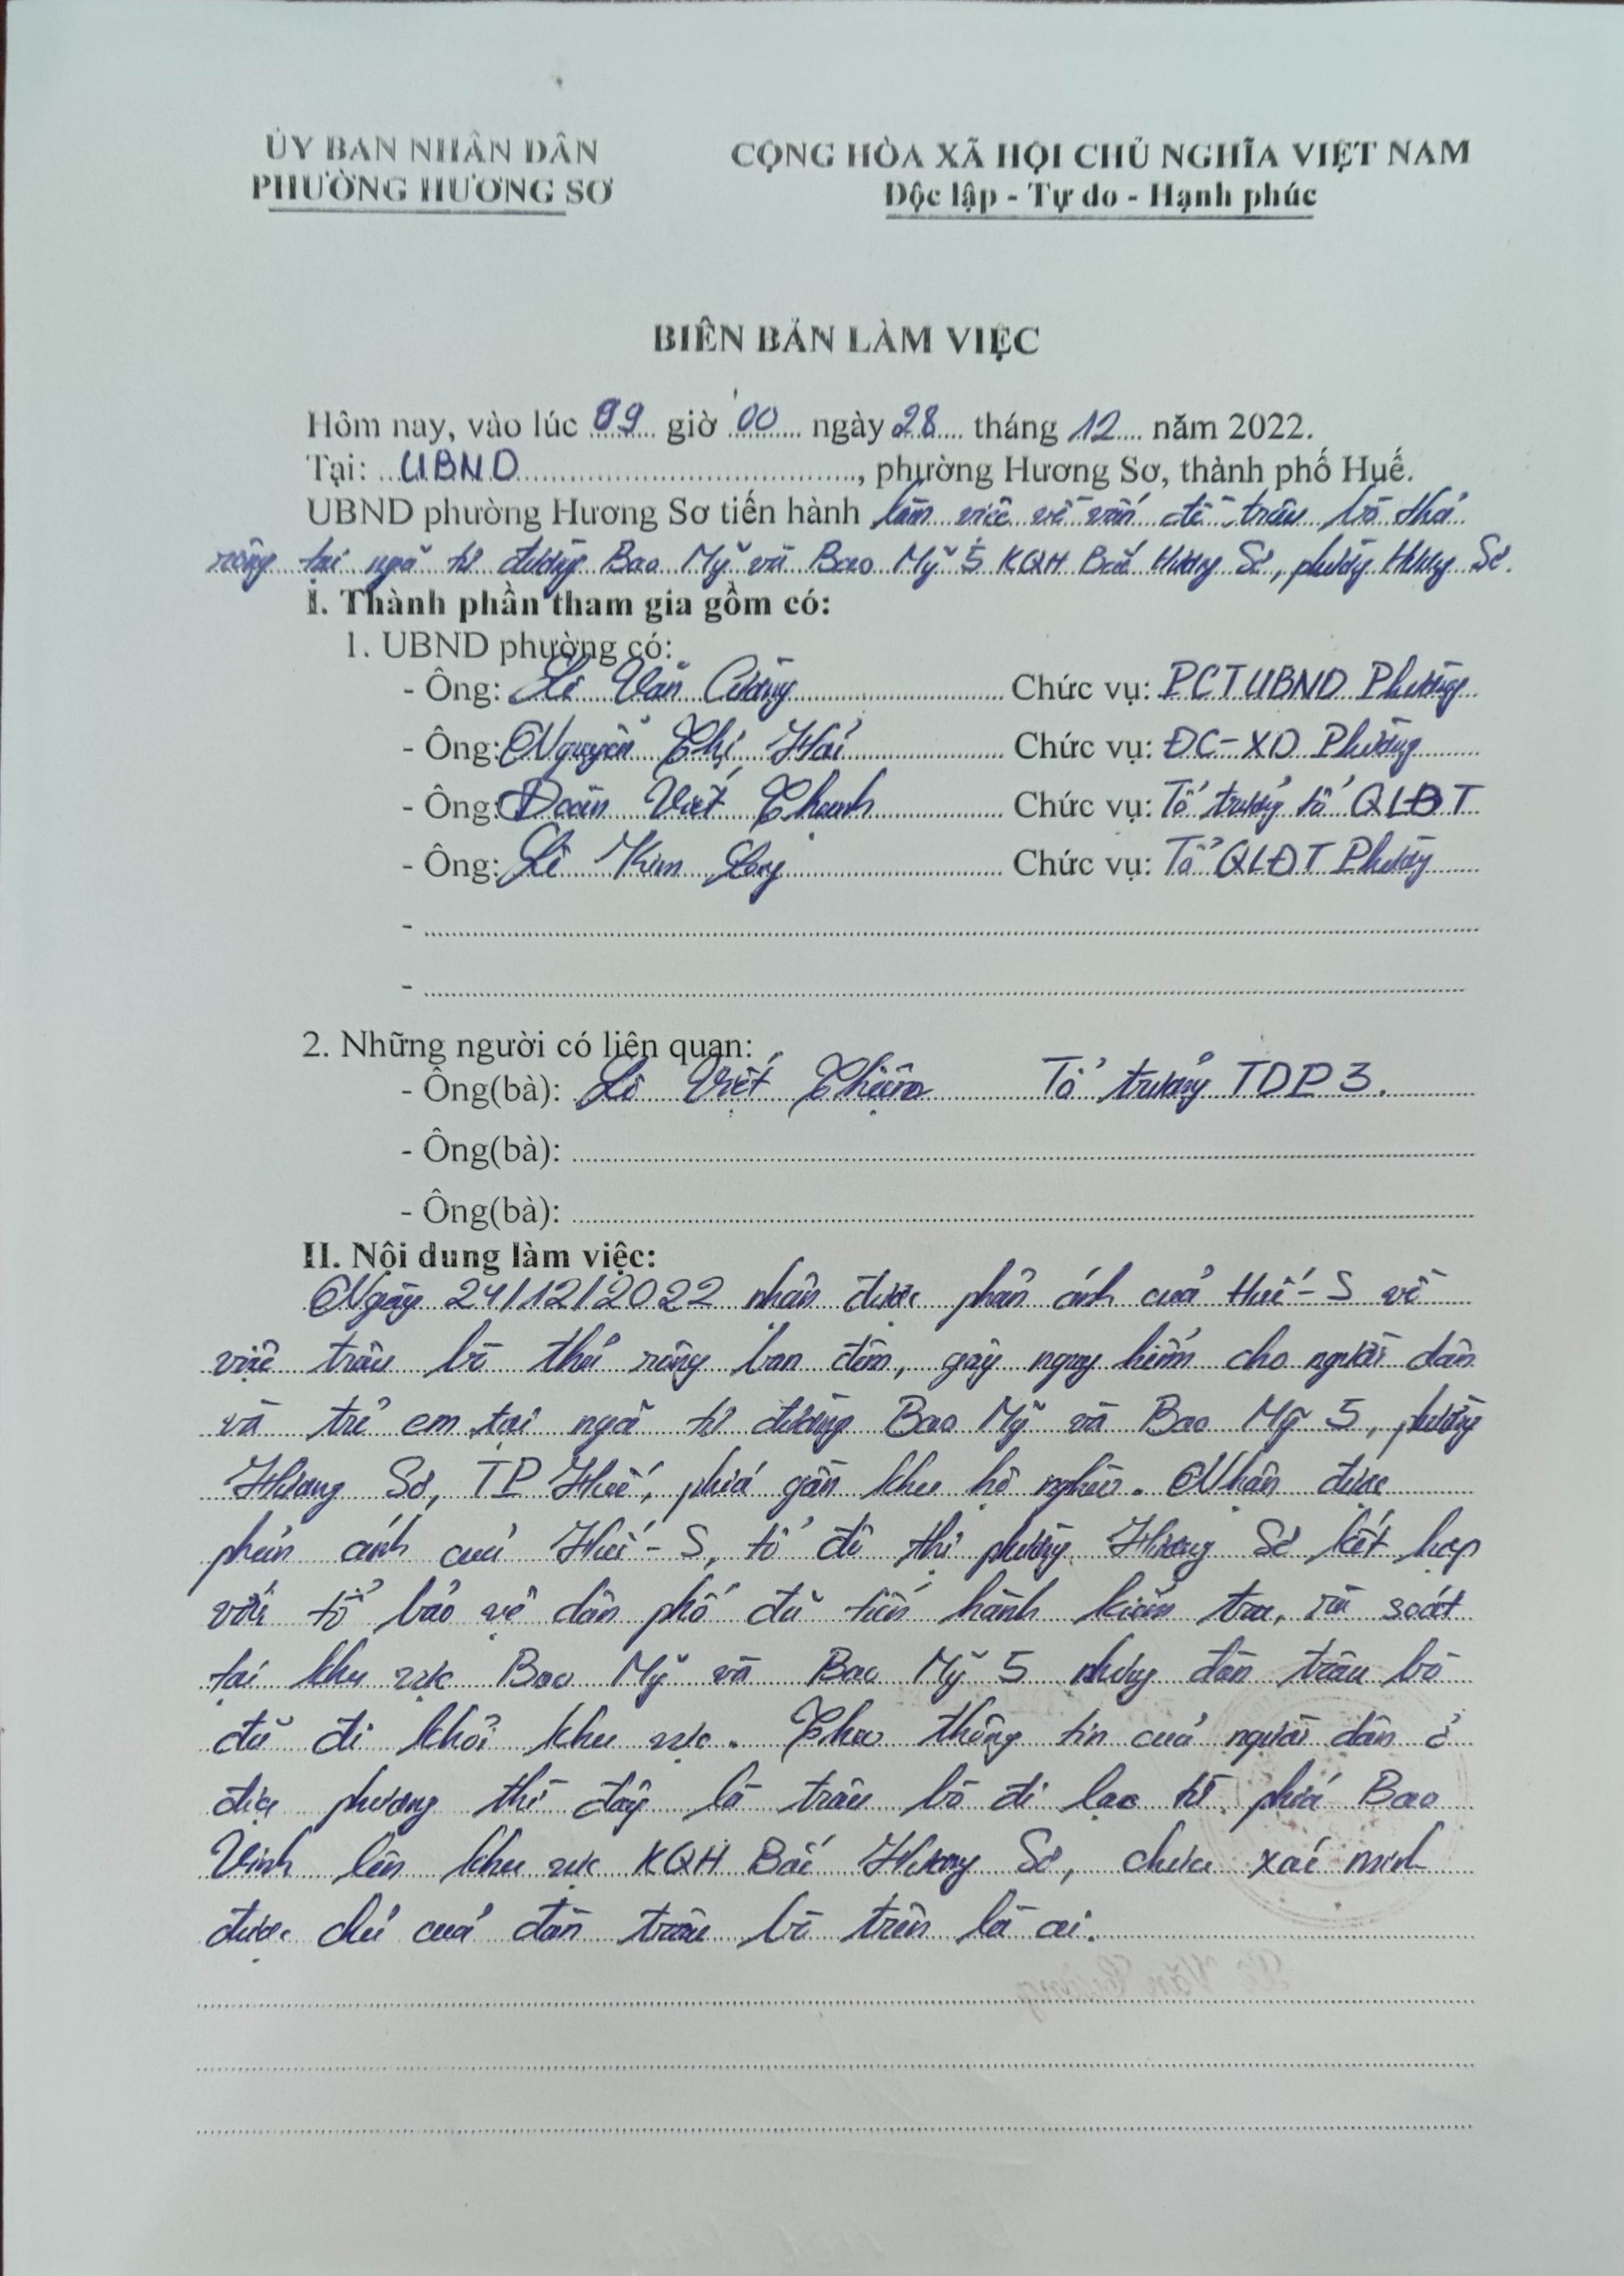 ỦY BAN NHÂN DÂN
PHƯỜNG HƯƠNG SƠ
CỘNG HÒA XÃ HỘI CHỦ NGHĨA VIỆT NAM
Độc lập - Tự do - Hạnh phúc
BIÊN BẢN LÀM VIỆC
Hôm nay, vào lúc 09 giờ 00 ngày 28 tháng 12 năm 2022.
Tại: UBND, phường Hương Sơ, thành phố Huế.
UBND phường Hương Sơ tiến hành làm việc về vấn đề trâu bò thả
rông tại ngã tư đường Bao Mỹ và Bao Mỹ 5 KQH Bắc Hương Sơ, phường Hương Sơ.
I. Thành phần tham gia gồm có:
1. UBND phường có:
- Ông: Lê Văn Cường Chức vụ: PCTUBND Phường
- Ông: Nguyễn Thị Hải Chức vụ: ĐC-XD Phường
- Ông: Đoàn Viết Thanh Chức vụ: Tổ trưởng tổ QLĐT
- Ông: Lê Kim Long Chức vụ: Tổ QLĐT Phường
-
-
2. Những người có liên quan:
- Ông(bà): Lê Viết Tổ trưởng TDP 3.
- Ông(bà):
- Ông(bà):
II. Nội dung làm việc:
Ngày 24/12/2022 nhận được phản ánh của Huế-S về
việc trâu bò thả rông ban đêm, gây nguy hiểm cho người dân
và trẻ em tại ngã tư đường Bao Mỹ và Bao Mỹ 5, phường
Hương Sơ, TP Huế, phía gần khu hộ nghèo. Nhận được
phản ánh của Huế-S, tổ đô thị phường Hương Sơ kết hợp
với tổ bảo vệ dân phố đã tiến hành kiểm tra, rà soát
tại khu vực Bao Mỹ và Bao Mỹ 5 nhưng đàn trâu bò
đã đi khỏi khu vực. Theo thông tin của người dân ở
địa phương thì đây là trâu bò đi lạc từ phía Bao
Vinh lên khu vực KQH Bắc Hương Sơ, chưa xác minh
được chủ của đàn trâu bò trên là ai.